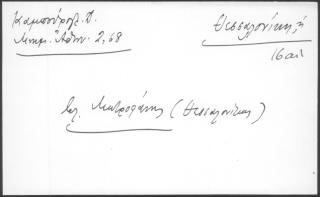 Καμπούρογλ. Δ.
Μνημ. Ἀθην. 2, 68
Θεσσαλονίκη,
16 αι
βλ. Μητροφάνης (Θεσσαλονίκης)